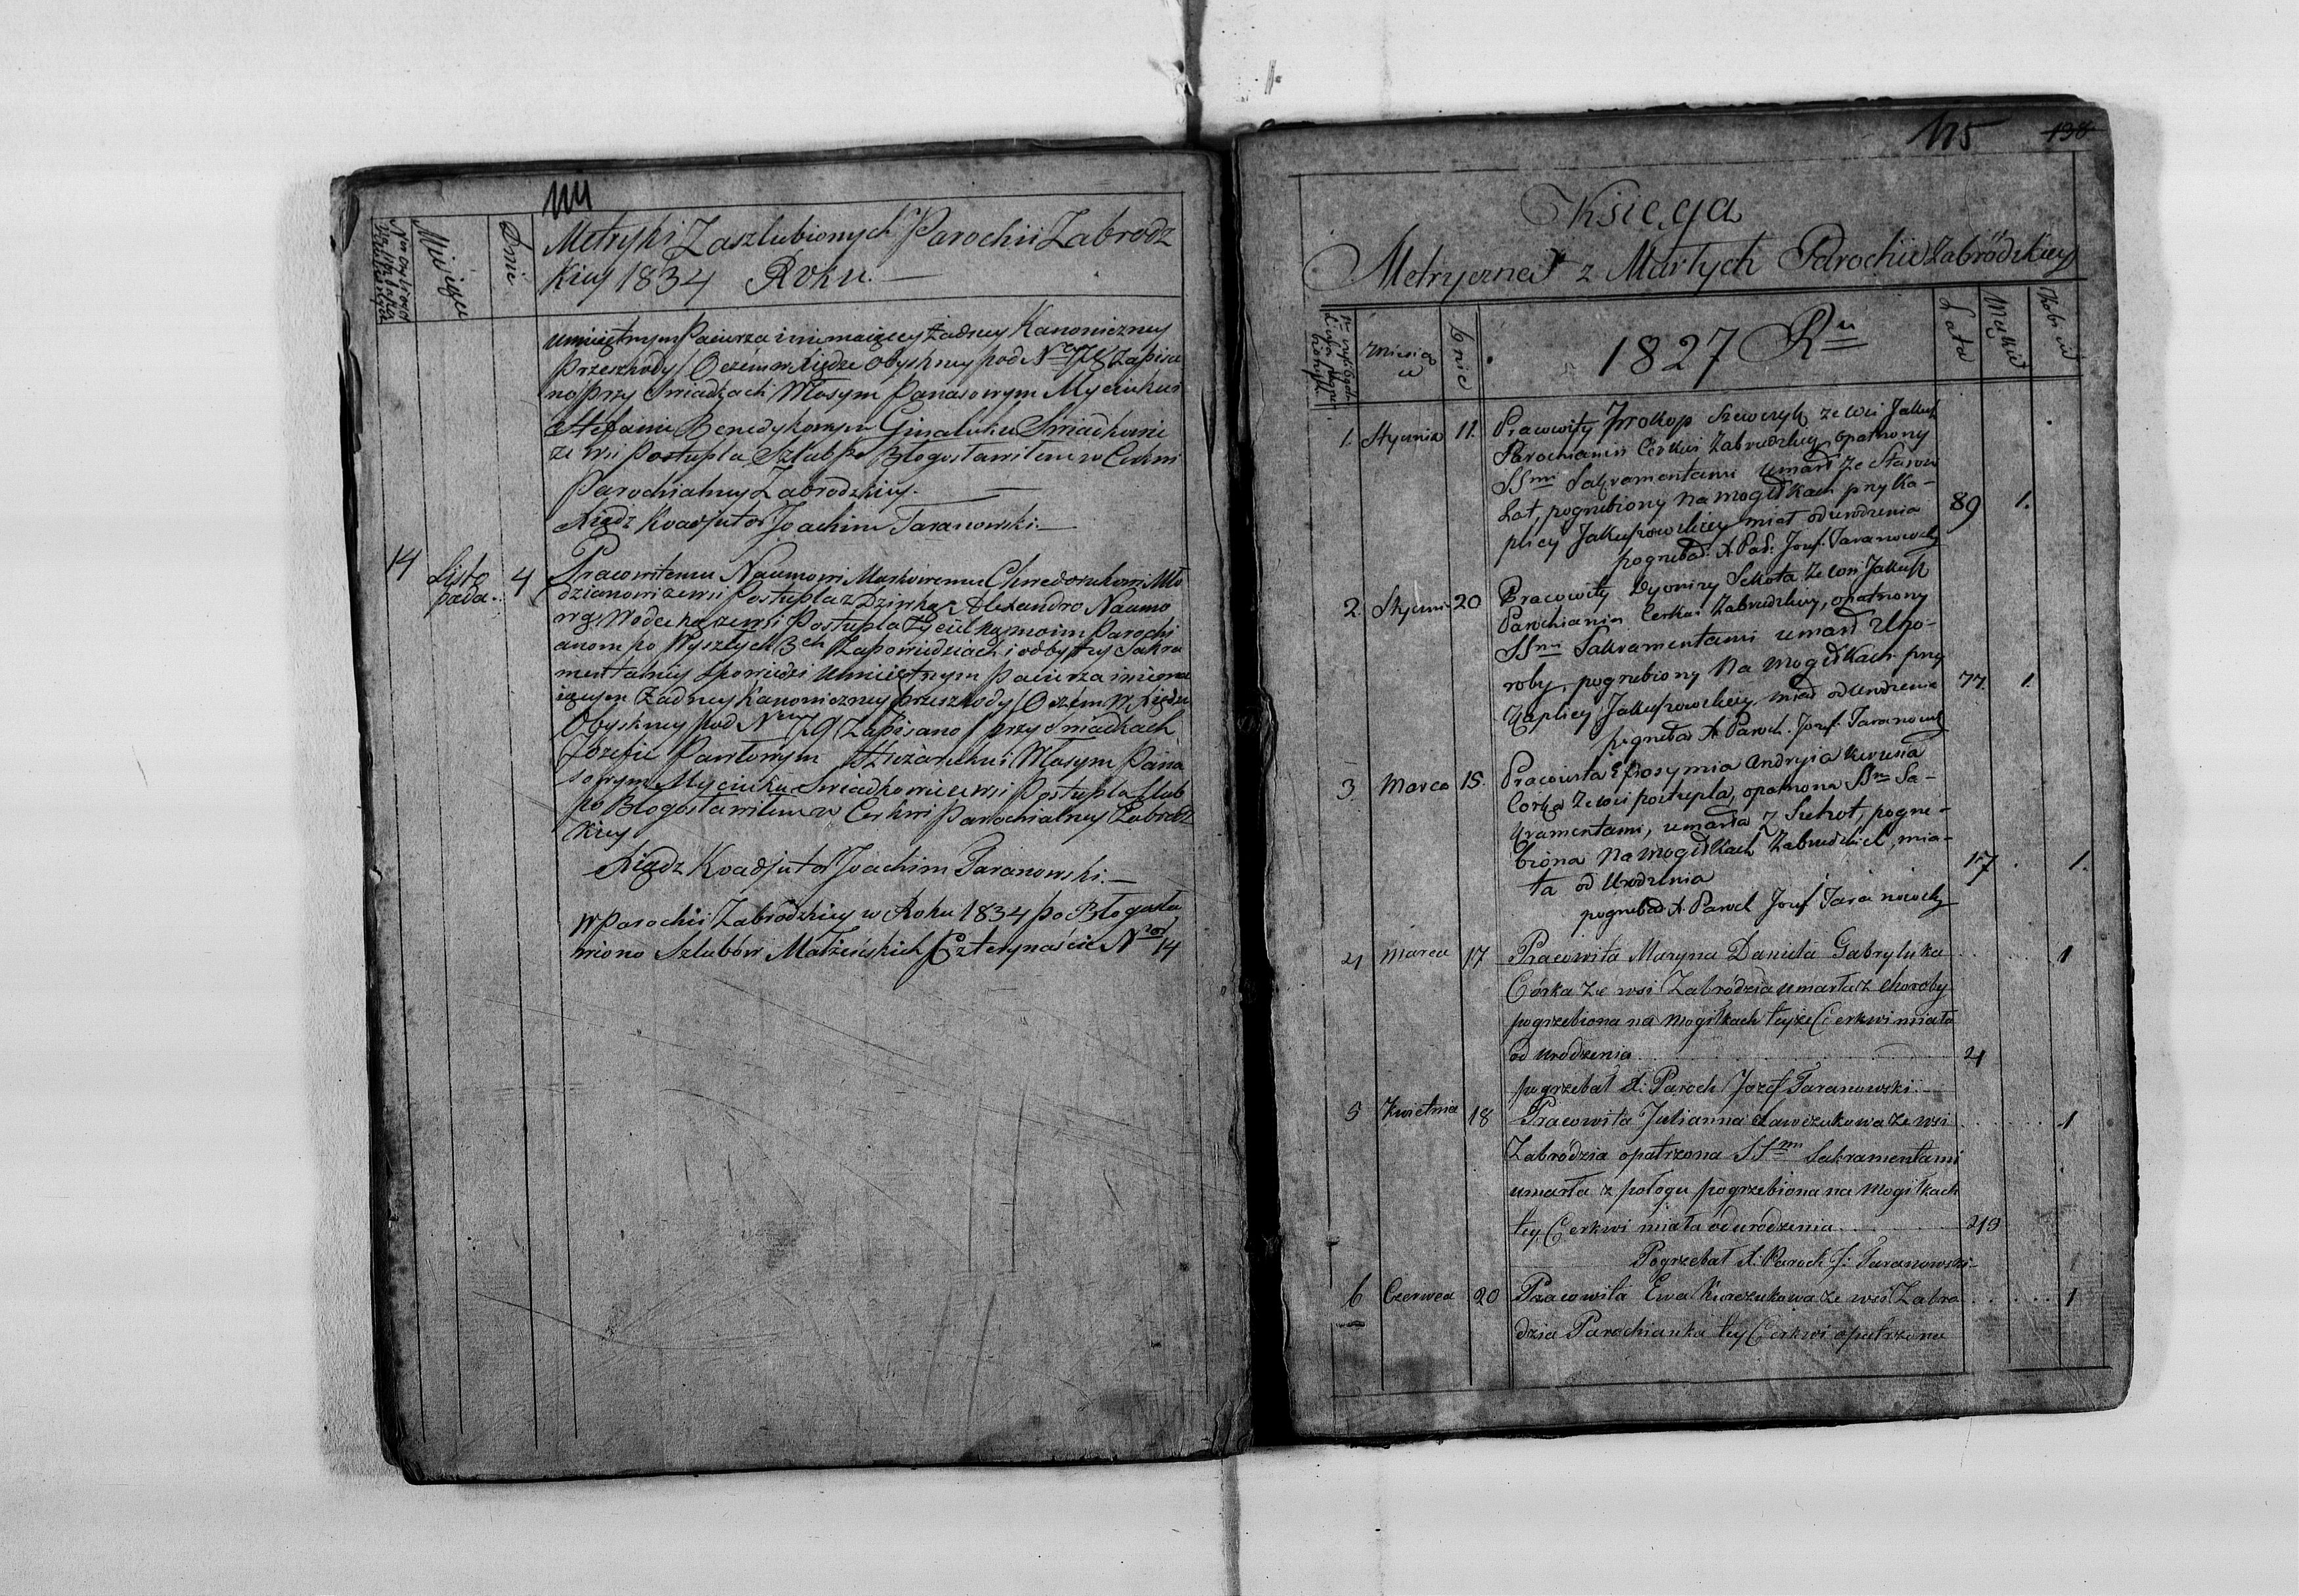 Metryki Zaszlubionych Parochii Zabrodz
kiey 1834 Roku.
Miesięcy
Dnie
umiiętnym Pacierza i niemaiącey żadney Kanoniczney
Przeszkody (O czém w Xiędze Obyskney pod N zapisa
no) przy Swiadkach Własym Panasowym Myciuku i
Stefanie Benedykowym Swiadkowie
ze wsi Postupla Szlub Błogosławiłem w Cerkwi
Parochialney Zabrodzkiey.
Xiądz Koadjutor Joachim Taranowski.
14 Listo 4 Pracowitemu Naumowi Markowemu Chwedorukowi Mło
pada. dzianowi ze wsi Postupla z Dziewką Alexandrą Naumo
wą ze wsi Postupla moim Parochi
anom po Wyszłych 3ch Zapowiedziach i odbytey Sakra
mentalney Spowiedzi umieiętnym Pacierza i niema
iącym Żadney Kanoniczney przeszkody (O czém w Xiędze
Obyskney pod N 79 Zapisano) przy Swiadkach
Józefie Pawłowym i Własym Pana
sowym Myciuku Swiadkowie ze wsi Postupla Slub
po Błogosławiłem w Cerkwi Parochialney Zabrodz
kiey
Xiądz Koadjutor Joachim Taranowski.
W Parochii Zabrödzkiey w Roku 1834 po Błogosła
wiono Szlubów Małżeńskich Czternaście N 14
115 138
Księga
Metryczna z Marłych Parochii Zabródzkiey
Miesiąc
Dnie
1827 Ru
Lata
Męskie
Kobiet
1. Stycznia 11. Pracowity Prokop Szewczyk ze wsi Jakusz
Parochianin Cerkwi Zabrudzkiey, opatrzony
SSmi Sakramentami umarł ze Starow
Lat, pogrzebiony na mogiłkach przy Ka-
plicy miał od urodzenia 89 1.
pogrzebał X. Par. Jozef Taranowsky
2. Stycznia 20 Pracowity Dyonizy Sekota ze wsi Jakusz
Parochianin Cerkwi Zabrudzkiey, opatrzony
SSmi Sakramentami umarł z Cho-
roby, pogrzebiony na mogiłkach przy
Kaplicy miał od urodzenia 77. 1.
pogrzebał X. Paroch. Jozef Taranowsky
3. Marca 15. Pracowita Efrosymia Andryia
Corka ze wsi Postupla, opatrzona SSmi Sa-
kramentami, umarła z Suchot, pogrze-
biona na mogiłkach Zabrudzkich, mia-
ła od Urodzenia 17. 1.
pogrzebał X. Paroch Jozef Taranowsky
4 Marca 17 Pracowita Maryna Daniela Gabryluka 1
Córka ze wsi Zabródzia umarła z Choroby
pogrzebiona na Mogiłkach teyże Cerkwi miała
od urodzenia 4
pogrzebał X: Paroch Jozef Taranowski.
5 Kwietnia 18 Pracowita Julianna ze wsi 1
Zabrodzia opatrzona SSmi Sakramentami
umarła z połogu pogrzebiona na Mogiłkach
tey Cerkwi miała od urodzenia 43
Pogrzebał X: Paroch J: Taranowski
6 Czerwca 20 Pracowita Ewa Kurczukowa ze wsi Zabro 1
dzia Parochianka tey Cerkwi opatrzona